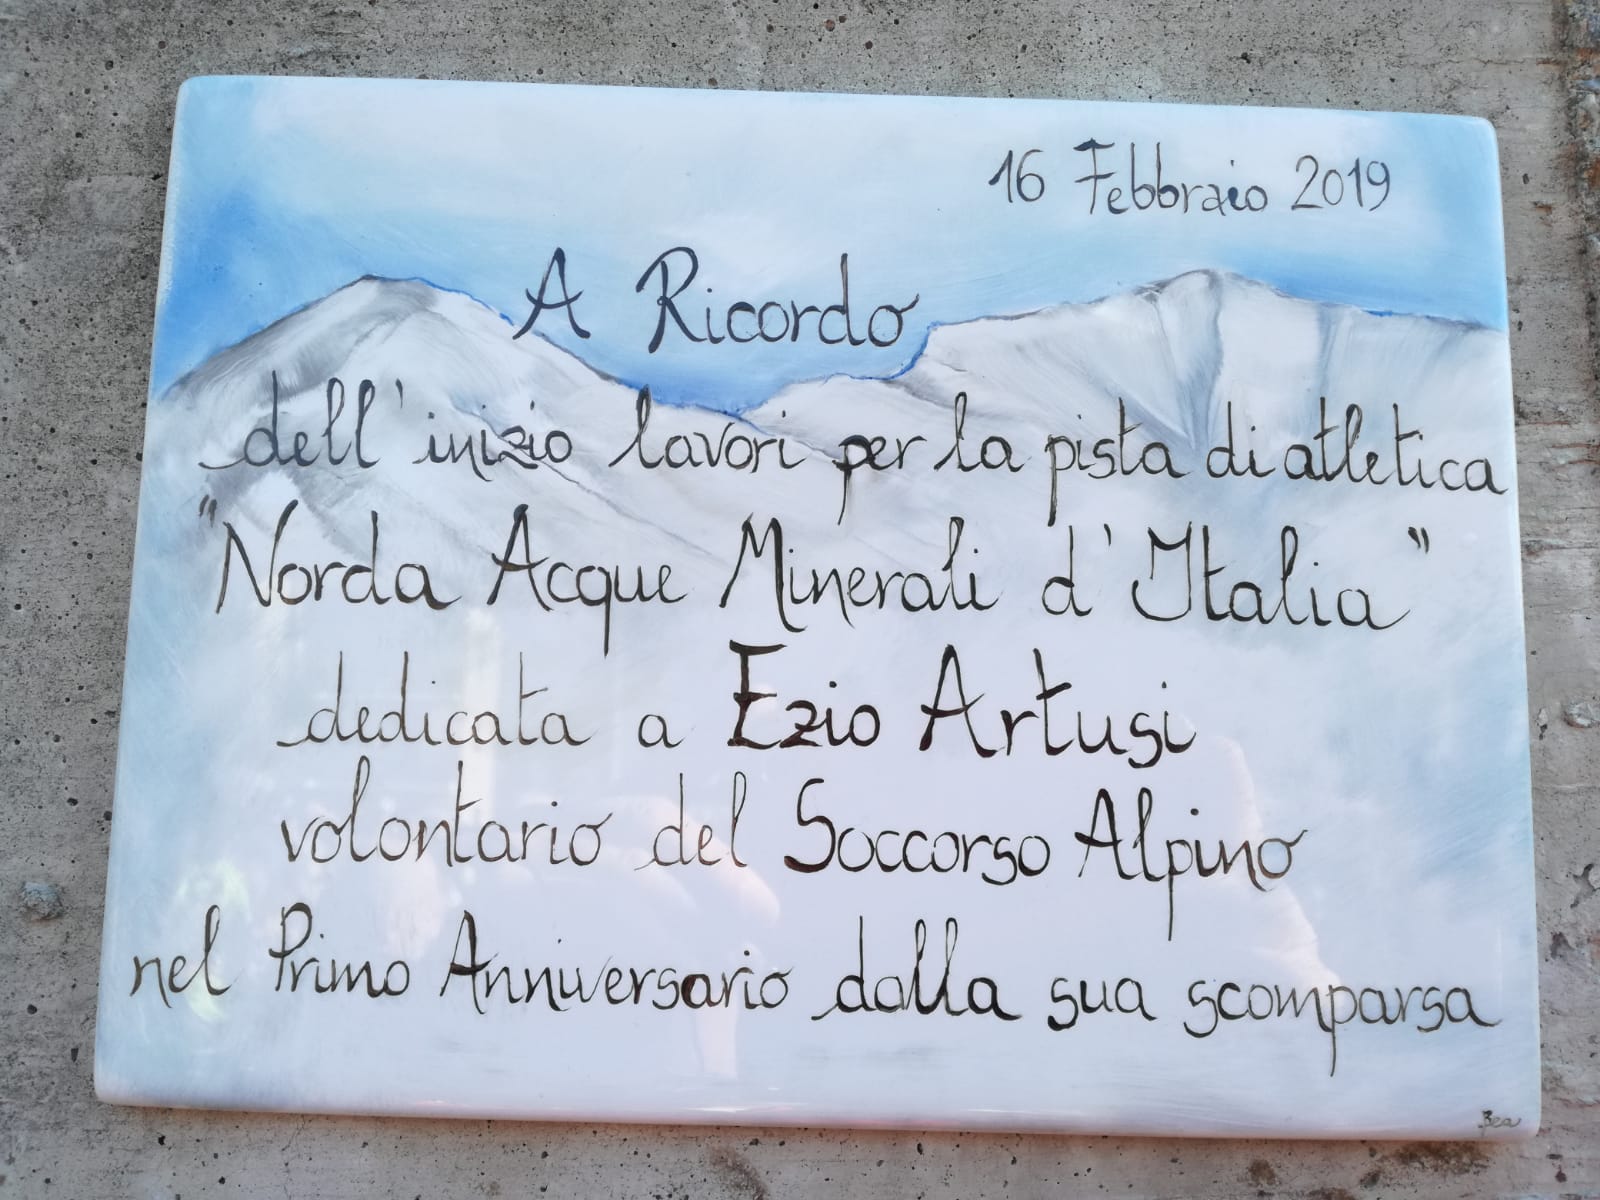 16 Febbraio 2019
A Ricordo
dell'inizio lavori per la pista di atletica
"Norda Acque Minerali d'Italia"
dedicata a Ezio Artusi
volontario del Soccorso Alpino
nel Primo Anniversario dalla sua scomparsa
Bea